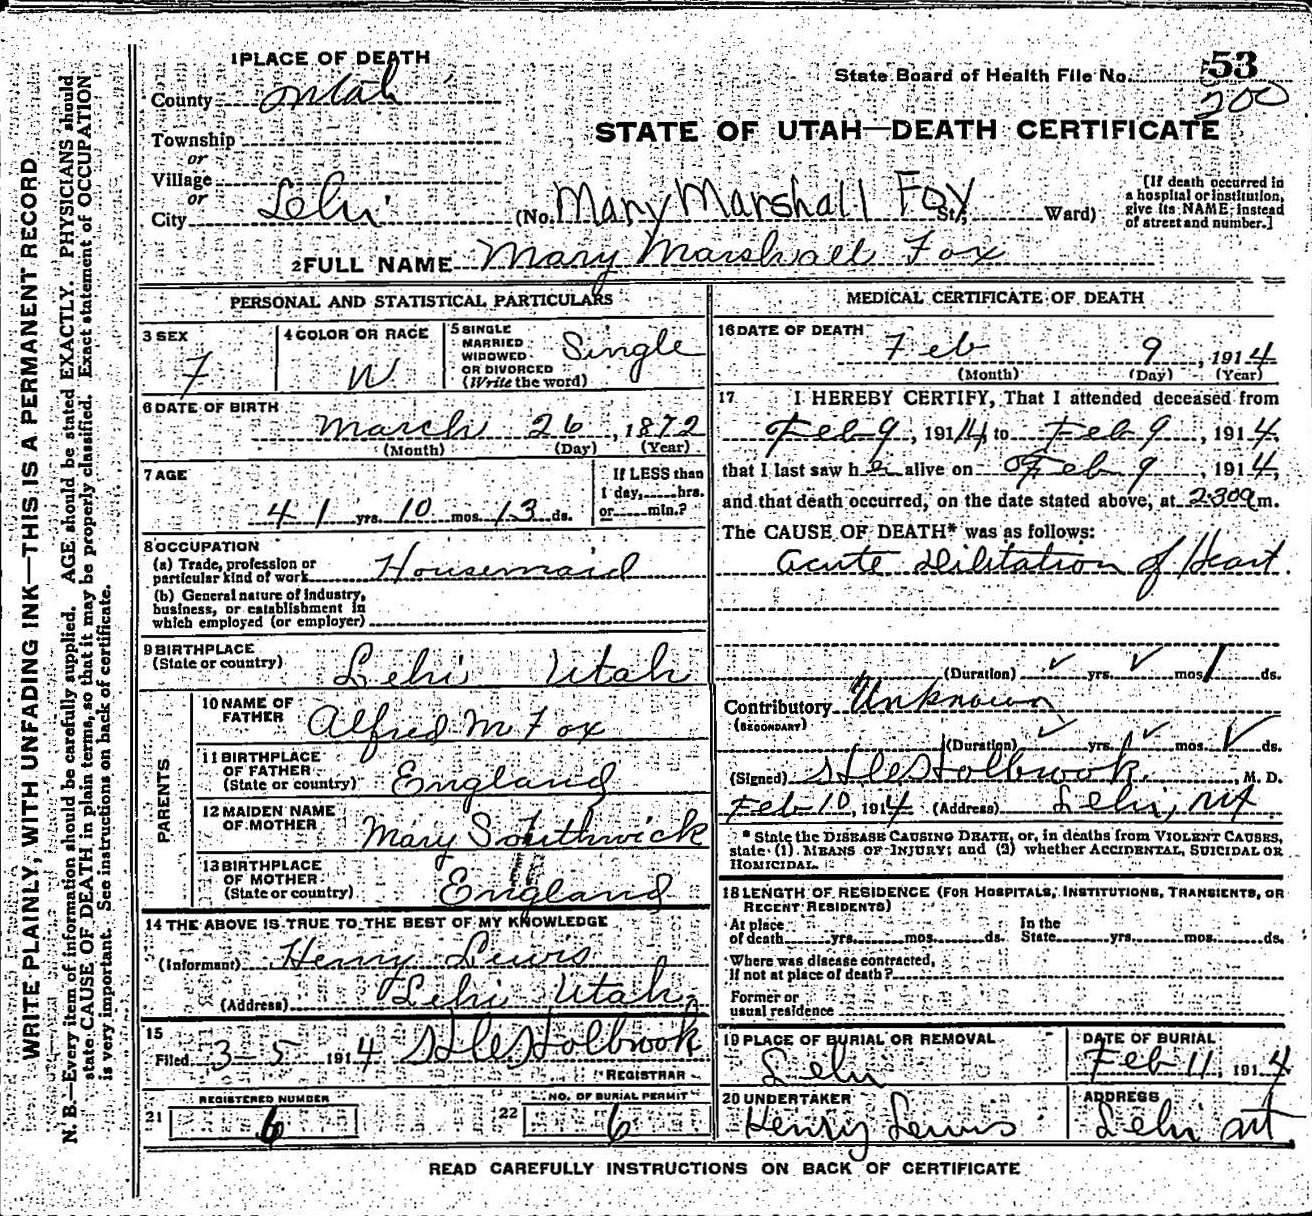 WRITE PLAINLY, WITH UNFADING INK—THIS IS A PERMANENT RECORD
N. B.—Every item of information should be carefully supplied. AGE should be stated EXACTLY. PHYSICIANS should
state CAUSE OF DEATH in plain terms, so that it may be properly classified. Exact statement of OCCUPATION
is very important. See instructions on back of certificate.
1 PLACE OF DEATH
County Utah
Township
or
Village
or
City Lehi
State Board of Health File No. 53
200
STATE OF UTAH—DEATH CERTIFICATE
(No. Mary Marshall Fox St; Ward)
(If death occurred in
a hospital or institution,
give its NAME instead
of street and number.]
2 FULL NAME Mary Marshall Fox
PERSONAL AND STATISTICAL PARTICULARS
3 SEX
F
4 COLOR OR RACE
W
5 SINGLE
MARRIED
WIDOWED
OR DIVORCED
(Write the word)
Single
6 DATE OF BIRTH
March 26, 1872
(Month) (Day) (Year)
7 AGE
41 yrs. 10 mos. 13 ds.
If LESS than
1 day, hrs.
or min.?
8 OCCUPATION
(a) Trade, profession or
particular kind of work Housemaid
(b) General nature of industry,
business, or establishment in
which employed (or employer)
9 BIRTHPLACE
(State or country) Lehi Utah
PARENTS
10 NAME OF
FATHER Alfred M Fox
11 BIRTHPLACE
OF FATHER
(State or country) England
12 MAIDEN NAME
OF MOTHER Mary Southwick
13 BIRTHPLACE
OF MOTHER
(State or country) England
14 THE ABOVE IS TRUE TO THE BEST OF MY KNOWLEDGE
(Informant) Henry Lewis
(Address) Lehi Utah
15
Filed 3-5 1914 Holbrook
REGISTRAR
21 REGISTERED NUMBER
6
22 NO. OF BURIAL PERMIT
6
MEDICAL CERTIFICATE OF DEATH
16 DATE OF DEATH
Feb 9, 1914
(Month) (Day) (Year)
17 I HEREBY CERTIFY, That I attended deceased from
Feb 9, 1914, to Feb 9, 1914,
that I last saw her alive on Feb 9, 1914,
and that death occurred, on the date stated above, at 2:30 a m.
The CAUSE OF DEATH* was as follows:
Acute Dilitation of Heart.
(Duration) ✓ yrs. ✓ mos. 1 ds.
Contributory Unknown
(SECONDARY)
(Duration) ✓ yrs. ✓ mos. ✓ ds.
(Signed) Holbrook M. D.
Feb 10, 1914 (Address) Lehi, Ut
* State the DISEASE CAUSING DEATH, or, in deaths from VIOLENT CAUSES,
state (1) MEANS OF INJURY; and (2) whether ACCIDENTAL, SUICIDAL OR
HOMICIDAL.
18 LENGTH OF RESIDENCE (FOR HOSPITALS, INSTITUTIONS, TRANSIENTS, OR
RECENT RESIDENTS)
At place
of death yrs. mos. ds.
In the
State yrs. mos. ds.
Where was disease contracted,
If not at place of death?
Former or
usual residence
19 PLACE OF BURIAL OR REMOVAL
Lehi
DATE OF BURIAL
Feb 11, 1914
20 UNDERTAKER
Henry Lewis
ADDRESS
Lehi Ut
READ CAREFULLY INSTRUCTIONS ON BACK OF CERTIFICATE